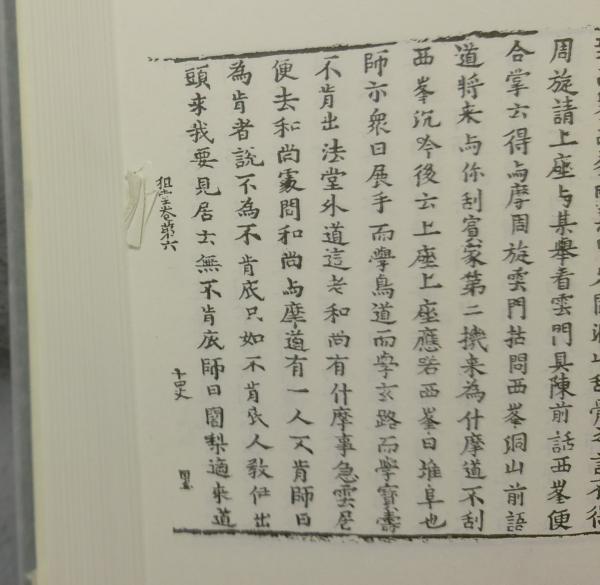 周旋請上座与某舉看雲門具陳前話西峯便
合掌云得与摩周旋雲門拈問西峯洞山前語
道將来与你刮賓家第二機来為什摩道不刮
西峯沉吟後云上座上座應喏西峯曰堆阜也
師示衆曰展手而學鳥道而學玄路而學寶壽
不肯出法堂外道這老和尚有什摩事急雲居
便去和尚處問和尚与摩道有一人不肯師曰
為肯者說不為不肯底只如不肯底人教伊出
頭来我要見居士無不肯底師曰闍梨適来道
祖堂卷第六
十四丈